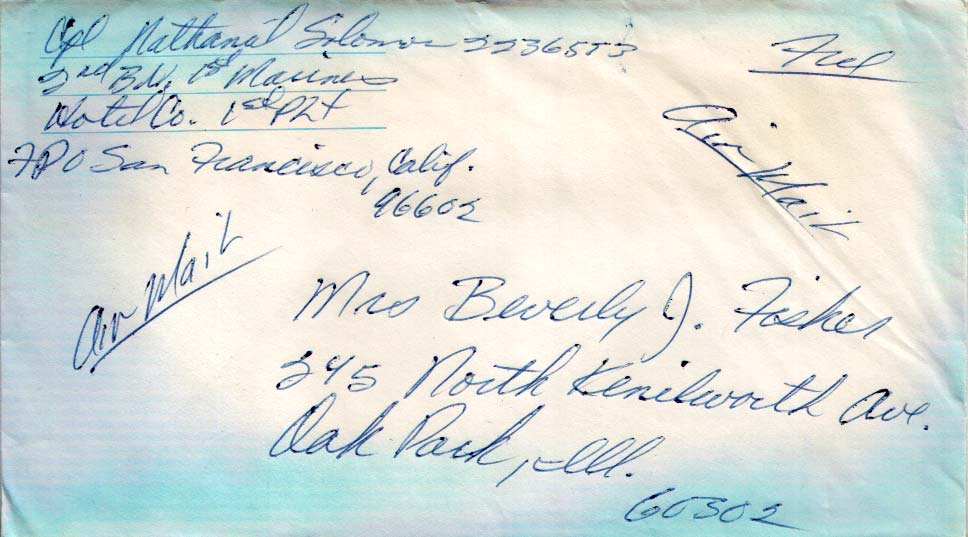 Cpl Nathanial Solomon 2236553
2nd Bn, 1st Marines
Hotel Co. 1st Plt
FPO San Francisco, Calif.
96602
Free
Air Mail
Air Mail
Mrs Beverly J. Fisker
345 North Kenilworth Ave.
Oak Park, Ill.
60302